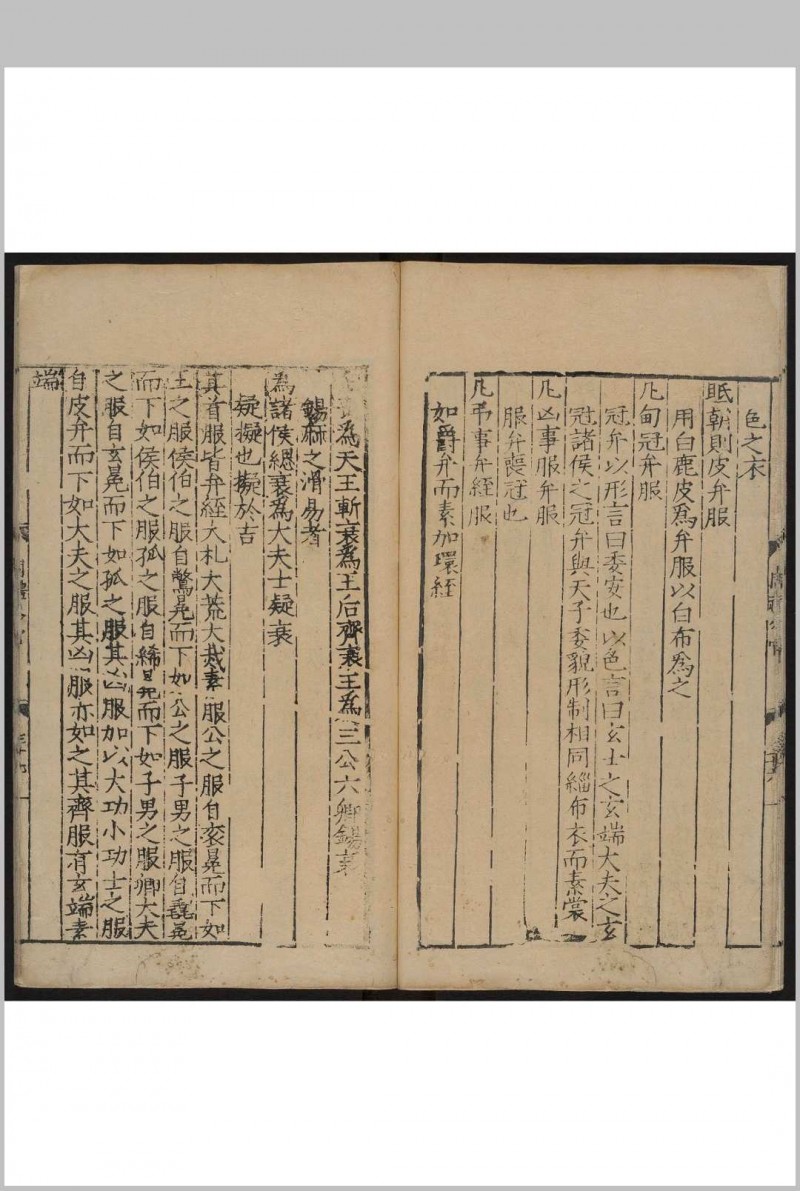 色之衣
眂朝則皮弁服
用白鹿皮為弁服以白布為之
凡甸冠弁服
冠弁以形言曰委安也以色言曰玄士之玄端大夫之玄
冠諸侯之冠弁與天子委貌形制相同緇布衣而素裳
凡凶事服弁服
服弁喪冠也
凡弔事弁絰服
如爵弁而素加環絰
為天王斬衰為王后齊衰王為三公六卿錫衰
錫麻之滑易者
為諸侯緦衰為大夫士疑衰
疑擬也擬於吉
其首服皆弁絰大札大荒大烖素服公之服自袞冕而下如
王之服侯伯之服自鷩冕而下如公之服子男之服自毳冕
而下如侯伯之服孤之服自絺冕而下如子男之服卿大夫
之服自玄冕而下如孤之服其凶服加以大功小功士之服
自皮弁而下如大夫之服其凶服亦如之其齊服有玄端素
端